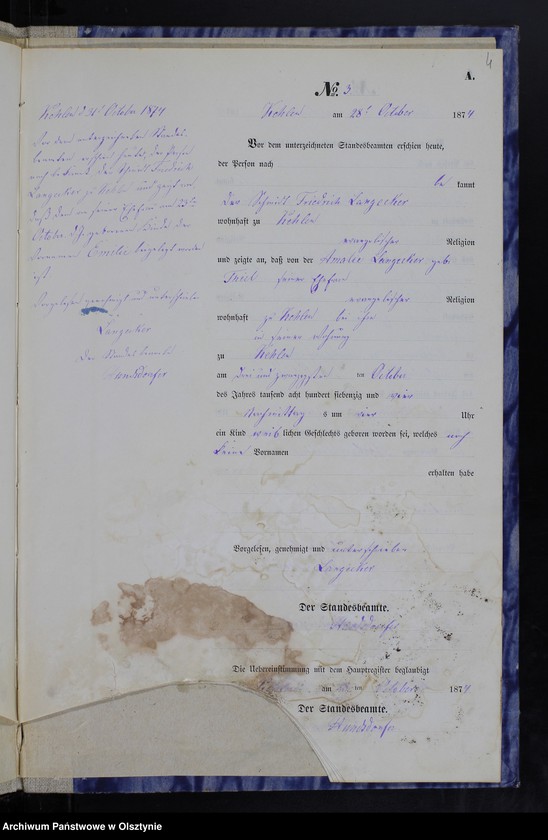 4
A.
№ 5
Kehlen am 28t October 1874
Vor dem unterzeichneten Standesbeamten erschien heute,
der Person nach
be kannt
der Friedrich Langecker
wohnhaft zu Kehlen
evangelischer Religion
und zeigte an, daß von der Amalie Langecker geb.
Thiel seiner Ehefrau
evangelischer Religion
wohnhaft zu Kehlen bei ihm
in seiner Wohnung
zu Kehlen
am drei und zwanzigsten ten October
des Jahres tausend acht hundert siebenzig und vier
Nachmittag s um vier Uhr
ein Kind weib lichen Geschlechts geboren worden sei, welches noch
keine Vornamen
erhalten habe
Vorgelesen, genehmigt und unterschrieben
Langecker
Der Standesbeamte.
Die Uebereinstimmung mit dem Hauptregister beglaubigt
am ten October 1874
Der Standesbeamte.
Kehlen d 31t October 1874
Vor dem unterzeichneten Standes-
beamten erschien heute, der Person
nach bekannt der Friedrich
Langecker zu Kehlen und zeigte an
daß dem von seiner Ehefrau am 23ten
October d. J. geborenen Kinde der
Vornamen Emilie beigelegt worden
ist
Vorgelesen genehmigt und unterschrieben
Langecker
Der Standesbeamte
Archiwum Państwowe w Olsztynie